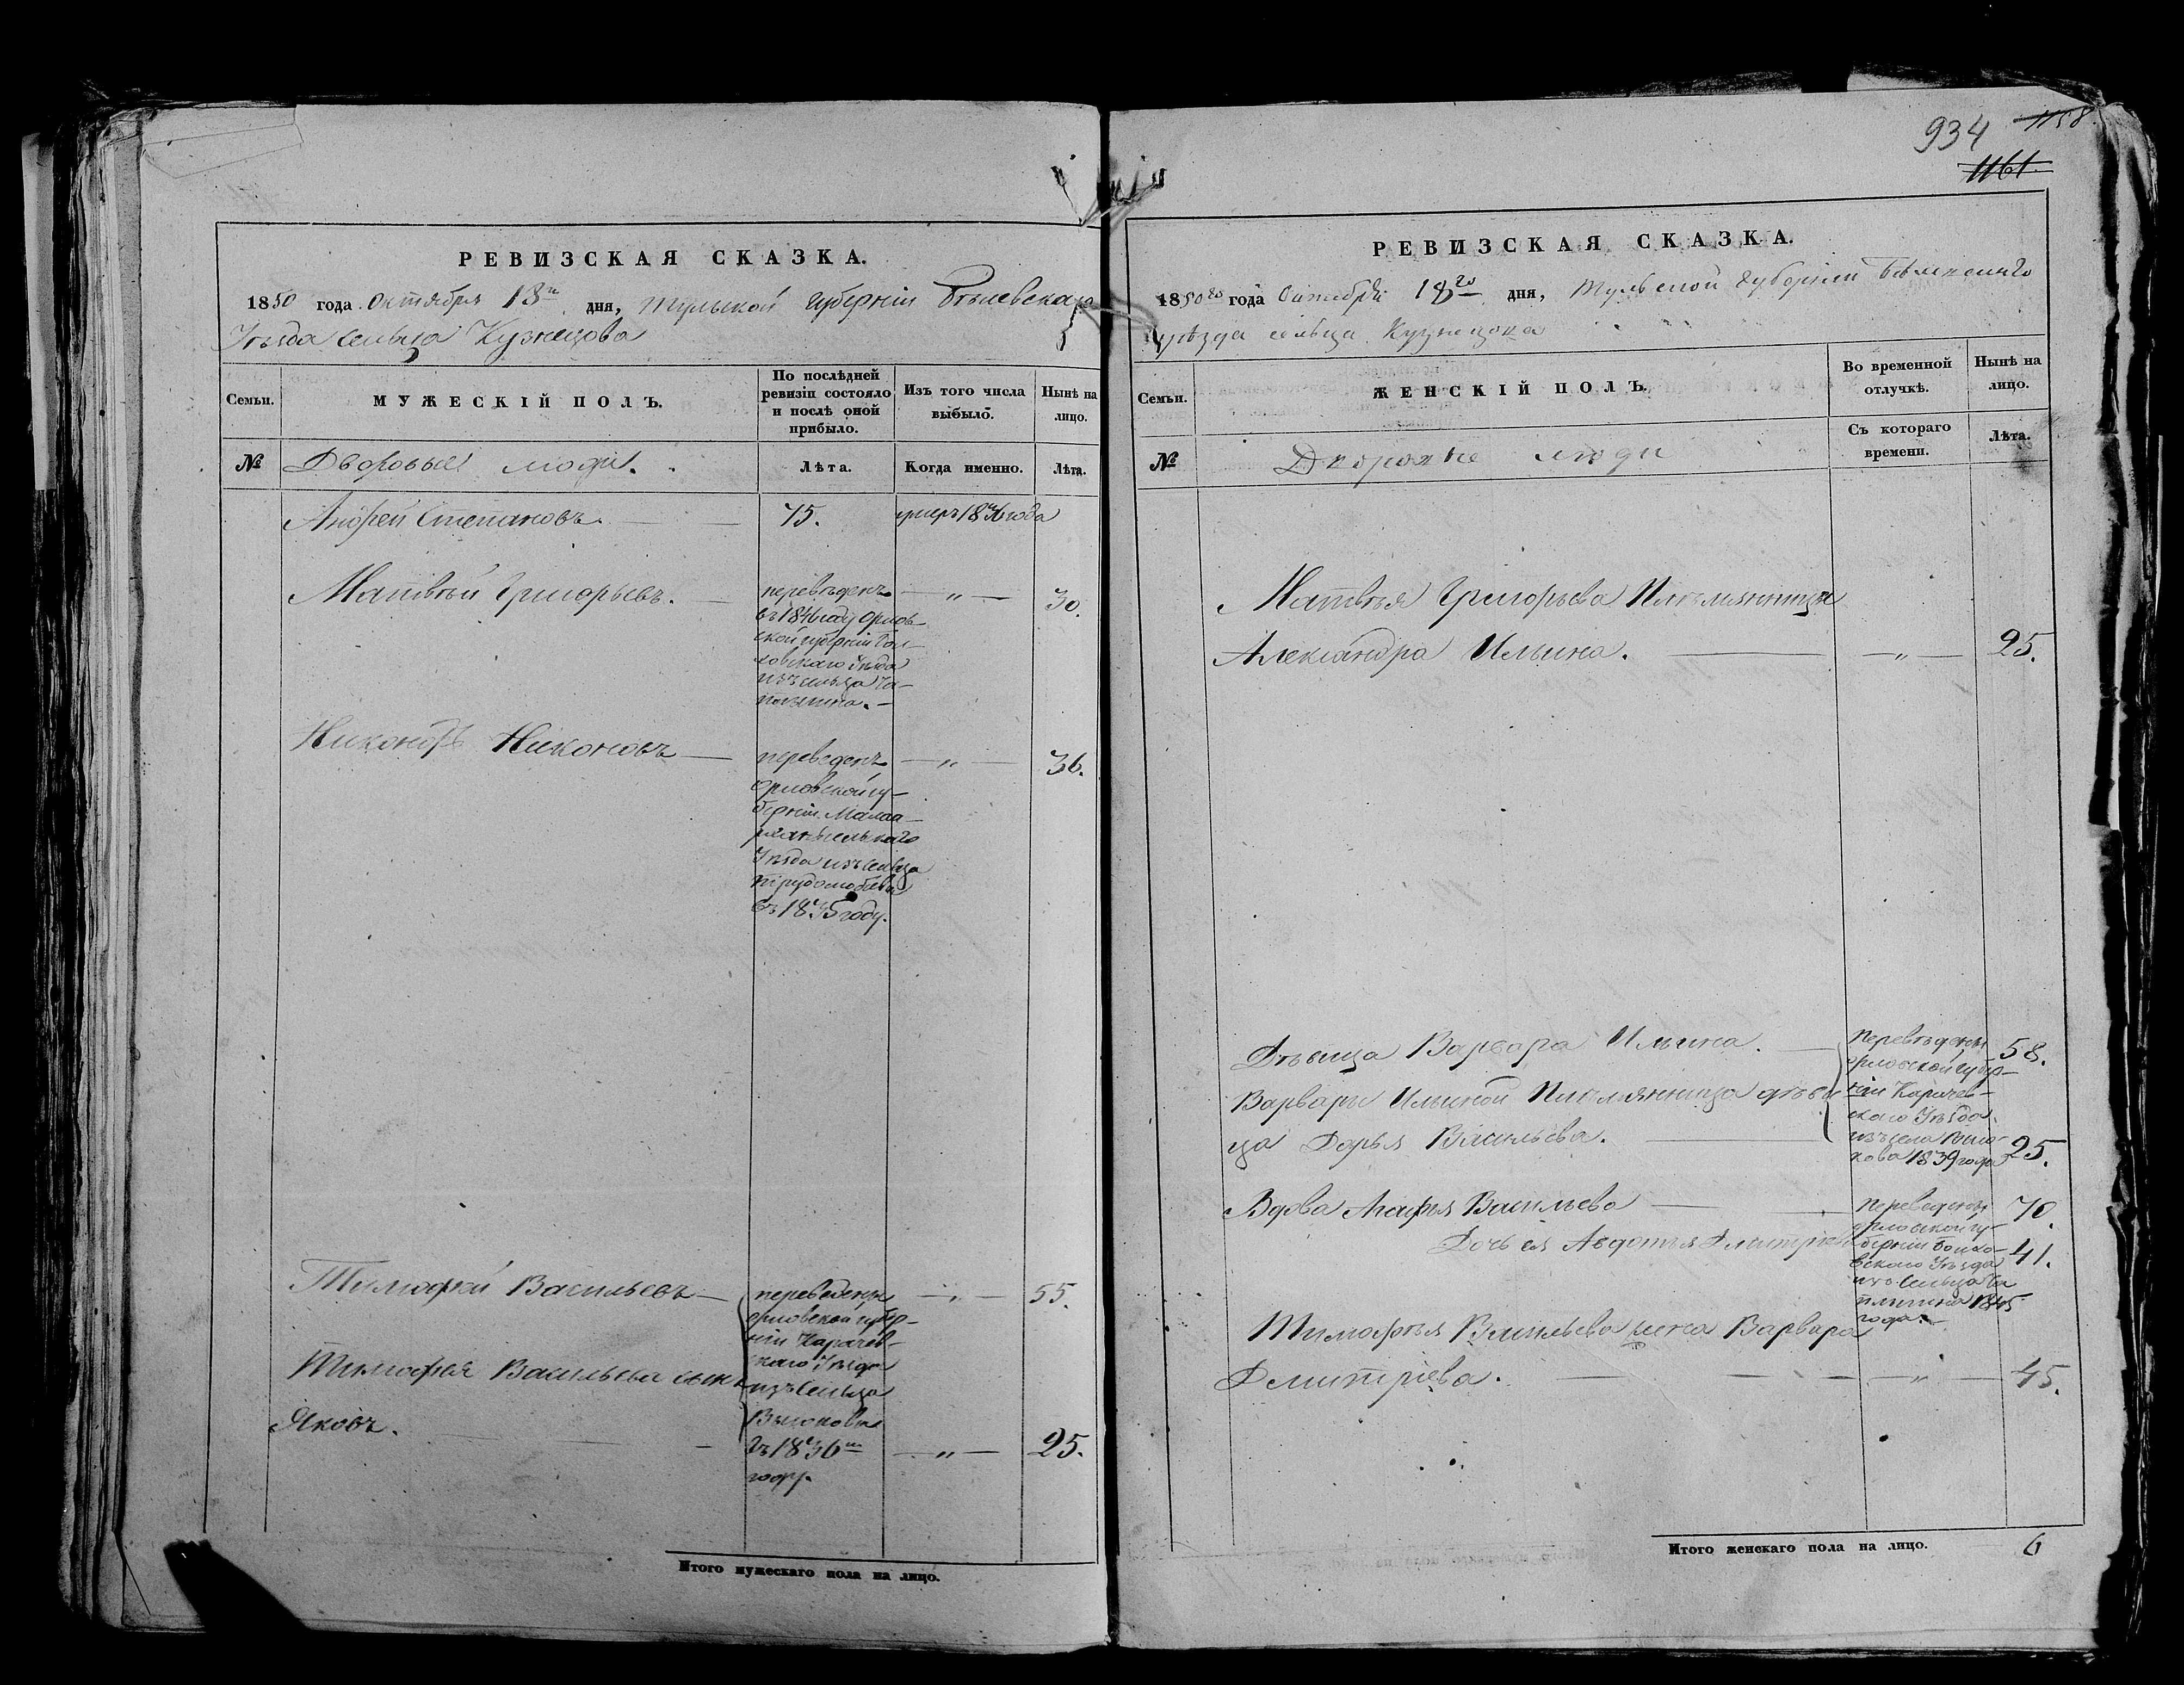 РЕВИЗСКАЯ СКАЗКА.
1850 года Октября 13го дня, Тульской Губерніи Бѣлевскаго
Уѣзда Сельца Кузнецова
Семьи.
МУЖЕСКІЙ ПОЛЪ.
По послѣдней ревизіи состояло и послѣ оной прибыло.
Изъ того числа выбыло.
Нынѣ на лицо.
№ Дворовые люди. Лѣта. Когда именно. Лѣта.
Андрей Степановъ. 75. умеръ 1836 года
Матвѣй Григорьевъ. переведенъ — „ — 30.
въ 184 году Орлов-
ской губерніи Бол-
ховскаго Уѣзда
изъ сельца Ча-
плыгина. —
Никоноръ Никоновъ — переведенъ — „ — 36.
Орловской гу-
берніи Малоа-
рхангельскаго
Уѣзда изъ сельца
въ 1835 году.
Тимофей Васильевъ — переведены — „ — 55.
Орловской губер-
ніи Карачев-
скаго Уѣзда
Тимофея Васильева сынъ изъ Сельца
Яковъ. Высокова
въ 1836м — „ — 25.
году.
Итого мужескаго пола на лицо.
934 1158
1161.
РЕВИЗСКАЯ СКАЗКА.
1850го года Октября 13го дня, Тульской Губерніи Бѣлевскаго
уѣзда сельца Кузнецова
Семьи.
ЖЕНСКІЙ ПОЛЪ.
Во временной отлучкѣ.
Нынѣ на лицо.
№ Дворовые люди Съ котораго времени. Лѣта.
Матвѣя Григорьева Племянница
Александра Ильина. — „ — 25.
Дѣвица Варвара Ильина. Переведены 58.
Орловской губер-
Варвары Ильиной Племянница дѣви ніи Карачев-
скаго Уѣзда
ца Дарья Васильева. изъ села Высо-
кова 1839 года 25.
Вдова Агафья Васильева — Переведены 70.
Орловской гу-
Дочь ея Авдотья Дмитріева берніи Болхо- 41.
вскаго Уѣзда
изъ Сельца Ча
плыгина 1845
года.
Тимофѣя Васильева жена Варвара
Дмитріева. — — — „ — 45.
Итого женскаго пола на лицо. 6